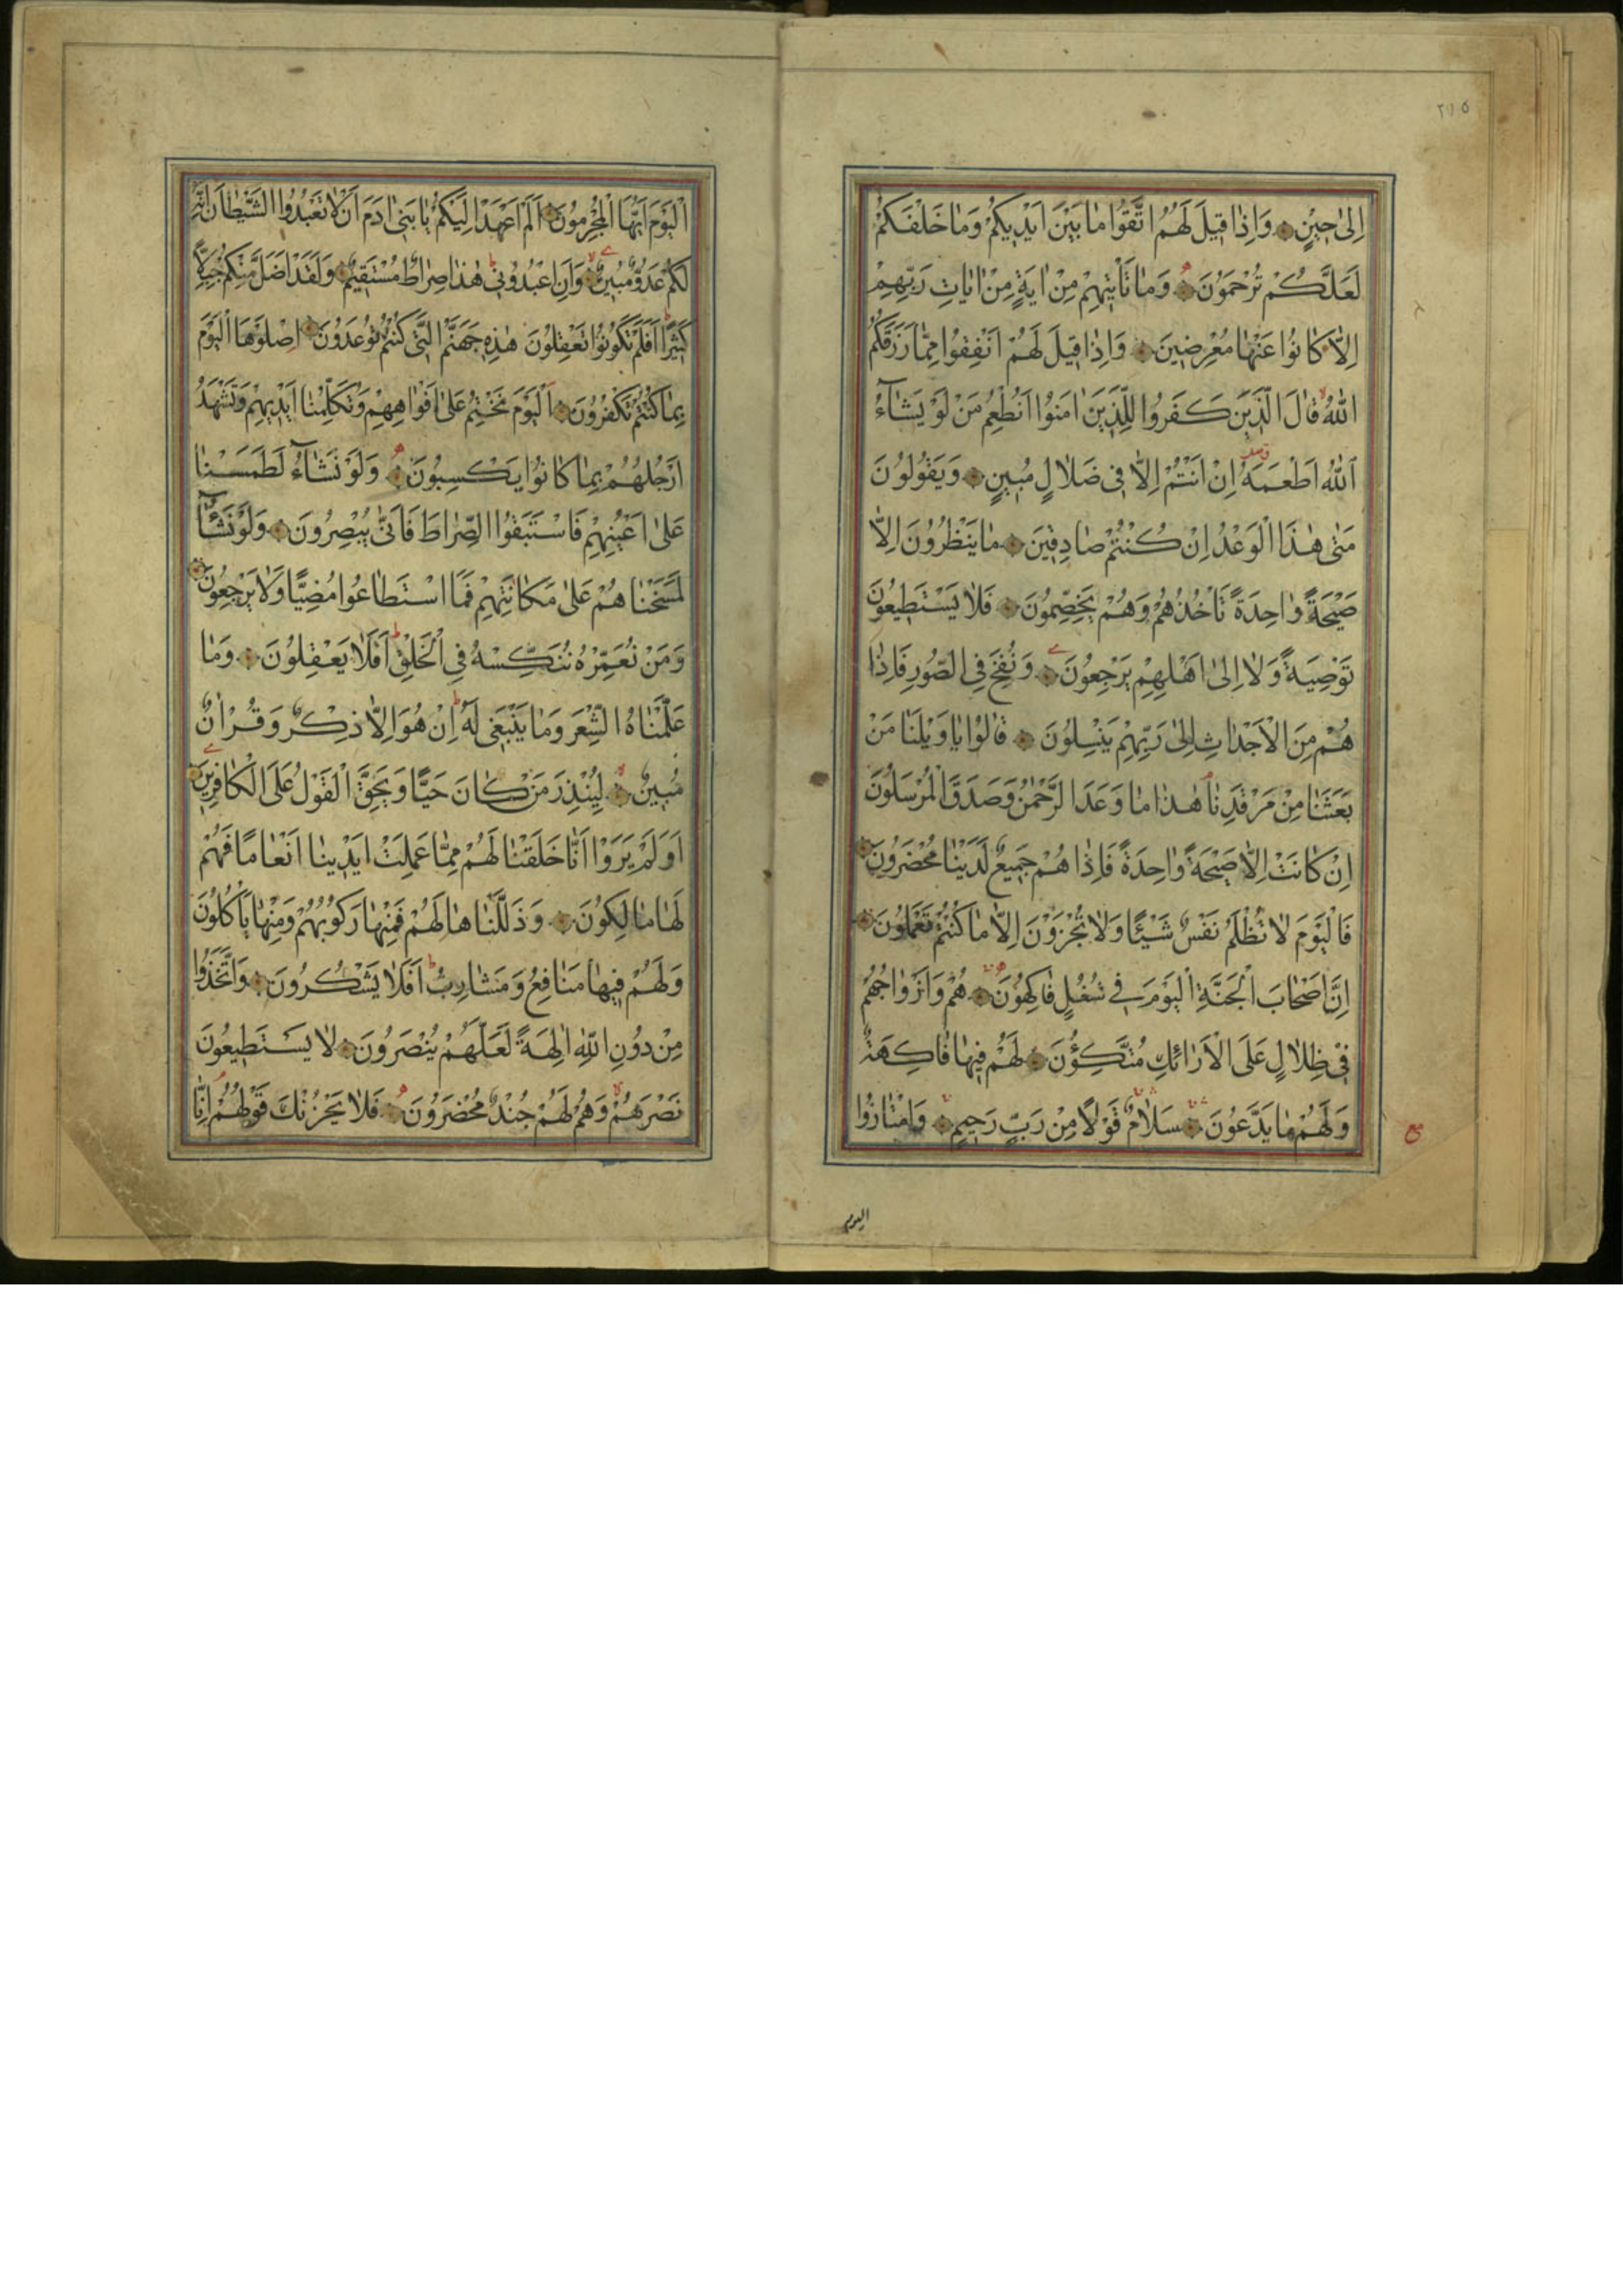 ٢١٥
اِلىٰ حينٍ وَاِذٰا قيلَ لَهُمُ اتَّقُوا مٰا بَيْنَ اَيْديكُمْ وَمٰا خَلْفَكُمْ
لَعَلَّكُمْ تُرْحَمُونَ وَمٰا تَأْتيهِمْ مِنْ اٰيَةٍ مِنْ اٰيٰاتِ رَبِّهِمْ
اِلّٰا كٰانُوا عَنْهٰا مُعْرِضينَ وَاِذٰا قيلَ لَهُمْ اَنْفِقُوا مِمّٰا رَزَقَكُمُ
اللّٰهُ قٰالَ الَّذينَ كَفَرُوا لِلَّذينَ اٰمَنُوا اَنُطْعِمُ مَنْ لَوْ يَشٰآءُ
اَللّٰهُ اَطْعَمَهُ اِنْ اَنْتُمْ اِلّٰا فى ضَلٰالٍ مُبينٍ وَيَقُولُونَ
مَتىٰ هٰذَا الْوَعْدُ اِنْ كُنْتُمْ صٰادِقينَ مٰا يَنْظُرُونَ اِلّٰا
صَيْحَةً وٰاحِدَةً تَأْخُذُهُمْ وَهُمْ يَخِصِّمُونَ فَلٰا يَسْتَطيعُونَ
تَوْصِيَةً وَلٰا اِلىٰ اَهْلِهِمْ يَرْجِعُونَ وَنُفِخَ فِى الصُّورِ فَاِذٰا
هُمْ مِنَ الْاَجْدٰاثِ اِلىٰ رَبِّهِمْ يَنْسِلُونَ قٰالُوا يٰا وَيْلَنٰا مَنْ
بَعَثَنٰا مِنْ مَرْقَدِنٰا هٰذٰا مٰا وَعَدَ الرَّحْمٰنُ وَصَدَقَ الْمُرْسَلُونَ
اِنْ كٰانَتْ اِلّٰا صَيْحَةً وٰاحِدَةً فَاِذٰا هُمْ جَميعٌ لَدَيْنٰا مُحْضَرُونَ
فَالْيَوْمَ لٰا تُظْلَمُ نَفْسٌ شَيْئًا وَلٰا تُجْزَوْنَ اِلّٰا مٰا كُنْتُمْ تَعْمَلُونَ
اِنَّ اَصْحٰابَ الْجَنَّةِ الْيَوْمَ فى شُغُلٍ فٰاكِهُونَ هُمْ وَاَزْوٰاجُهُمْ
فى ظِلٰالٍ عَلَى الْاَرٰائِكِ مُتَّكِؤُنَ لَهُمْ فيهٰا فٰاكِهَةٌ
وَلَهُمْ مٰا يَدَّعُونَ سَلٰامٌ قَوْلًا مِنْ رَبٍّ رَحيمٍ وَامْتٰازُوا
اليوم
اَلْيَوْمَ اَيُّهَا الْمُجْرِمُونَ اَلَمْ اَعْهَدْ اِلَيْكُمْ يٰا بَنى اٰدَمَ اَنْ لٰا تَعْبُدُوا الشَّيْطٰانَ اِنَّهُ
لَكُمْ عَدُوٌّ مُبينٌ وَاَنِ اعْبُدُونى هٰذٰا صِرٰاطٌ مُسْتَقيمٌ وَلَقَدْ اَضَلَّ مِنْكُمْ جِبِلًّا
كَثيرًا اَفَلَمْ تَكُونُوا تَعْقِلُونَ هٰذِهِ جَهَنَّمُ الَّتى كُنْتُمْ تُوعَدُونَ اِصْلَوْهَا الْيَوْمَ
بِمٰا كُنْتُمْ تَكْفُرُونَ اَلْيَوْمَ نَخْتِمُ عَلىٰ اَفْوٰاهِهِمْ وَتُكَلِّمُنٰا اَيْديهِمْ وَتَشْهَدُ
اَرْجُلُهُمْ بِمٰا كٰانُوا يَكْسِبُونَ وَلَوْ نَشٰآءُ لَطَمَسْنٰا
عَلىٰ اَعْيُنِهِمْ فَاسْتَبَقُوا الصِّرٰاطَ فَاَنّىٰ يُبْصِرُونَ وَلَوْ نَشٰآءُ
لَمَسَخْنٰاهُمْ عَلىٰ مَكٰانَتِهِمْ فَمَا اسْتَطٰاعُوا مُضِيًّا وَلٰا يَرْجِعُونَ
وَمَنْ نُعَمِّرْهُ نُنَكِّسْهُ فِى الْخَلْقِ اَفَلٰا يَعْقِلُونَ وَمٰا
عَلَّمْنٰاهُ الشِّعْرَ وَمٰا يَنْبَغى لَهُ اِنْ هُوَ اِلّٰا ذِكْرٌ وَقُرْاٰنٌ
مُبينٌ لِيُنْذِرَ مَنْ كٰانَ حَيًّا وَيَحِقَّ الْقَوْلُ عَلَى الْكٰافِرينَ
اَوَلَمْ يَرَوْا اَنّٰا خَلَقْنٰا لَهُمْ مِمّٰا عَمِلَتْ اَيْدينٰا اَنْعٰامًا فَهُمْ
لَهٰا مٰالِكُونَ وَذَلَّلْنٰاهٰا لَهُمْ فَمِنْهٰا رَكُوبُهُمْ وَمِنْهٰا يَأْكُلُونَ
وَلَهُمْ فيهٰا مَنٰافِعُ وَمَشٰارِبُ اَفَلٰا يَشْكُرُونَ وَاتَّخَذُوا
مِنْ دُونِ اللّٰهِ اٰلِهَةً لَعَلَّهُمْ يُنْصَرُونَ لٰا يَسْتَطيعُونَ
نَصْرَهُمْ وَهُمْ لَهُمْ جُنْدٌ مُحْضَرُونَ فَلٰا يَحْزُنْكَ قَوْلُهُمْ اِنّٰا